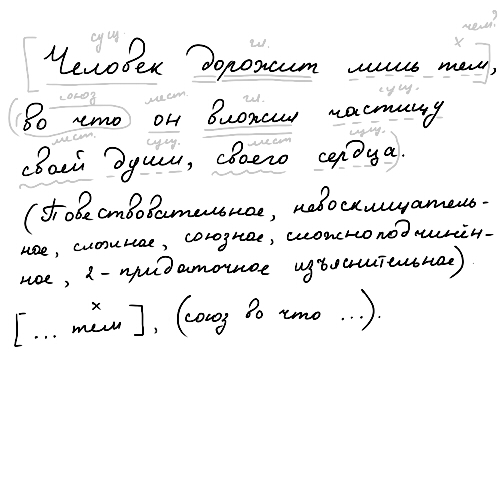 чем?
сущ. гл. х
[Человек дорожит лишь тем,
союз мест. гл. сущ.
(во что он вложил частицу
мест. сущ. мест сущ.
своей души, своего сердца.)
(Повествовательное, невосклицатель-
ное, сложное, союзное, сложноподчинён-
ное, 2-придаточное изъяснительное).
х
[... тем], (союз во что ...).